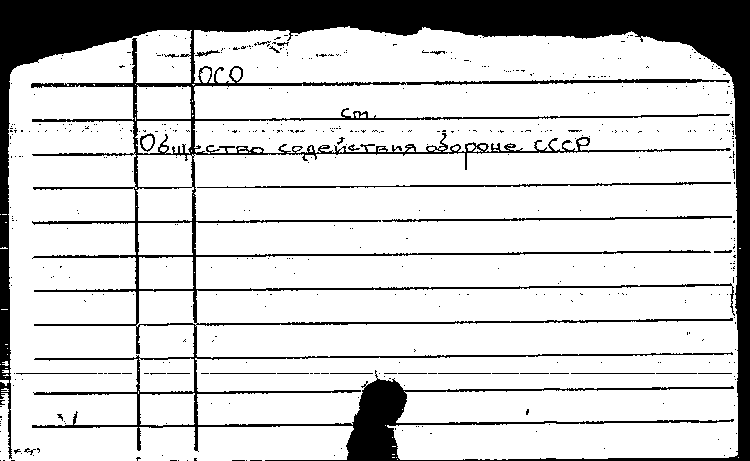 ОСО
см.
Общество содействия обороне СССР